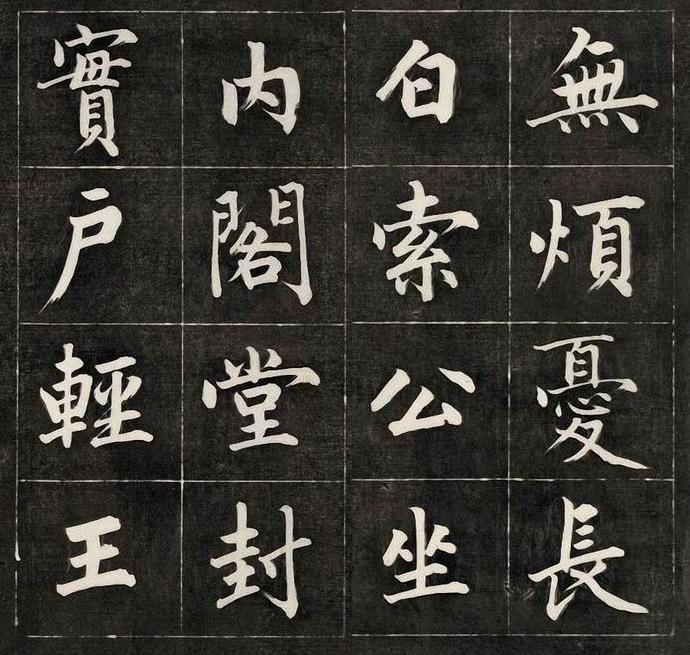 無煩憂長
白索公坐
内閣堂封
實戶輕王